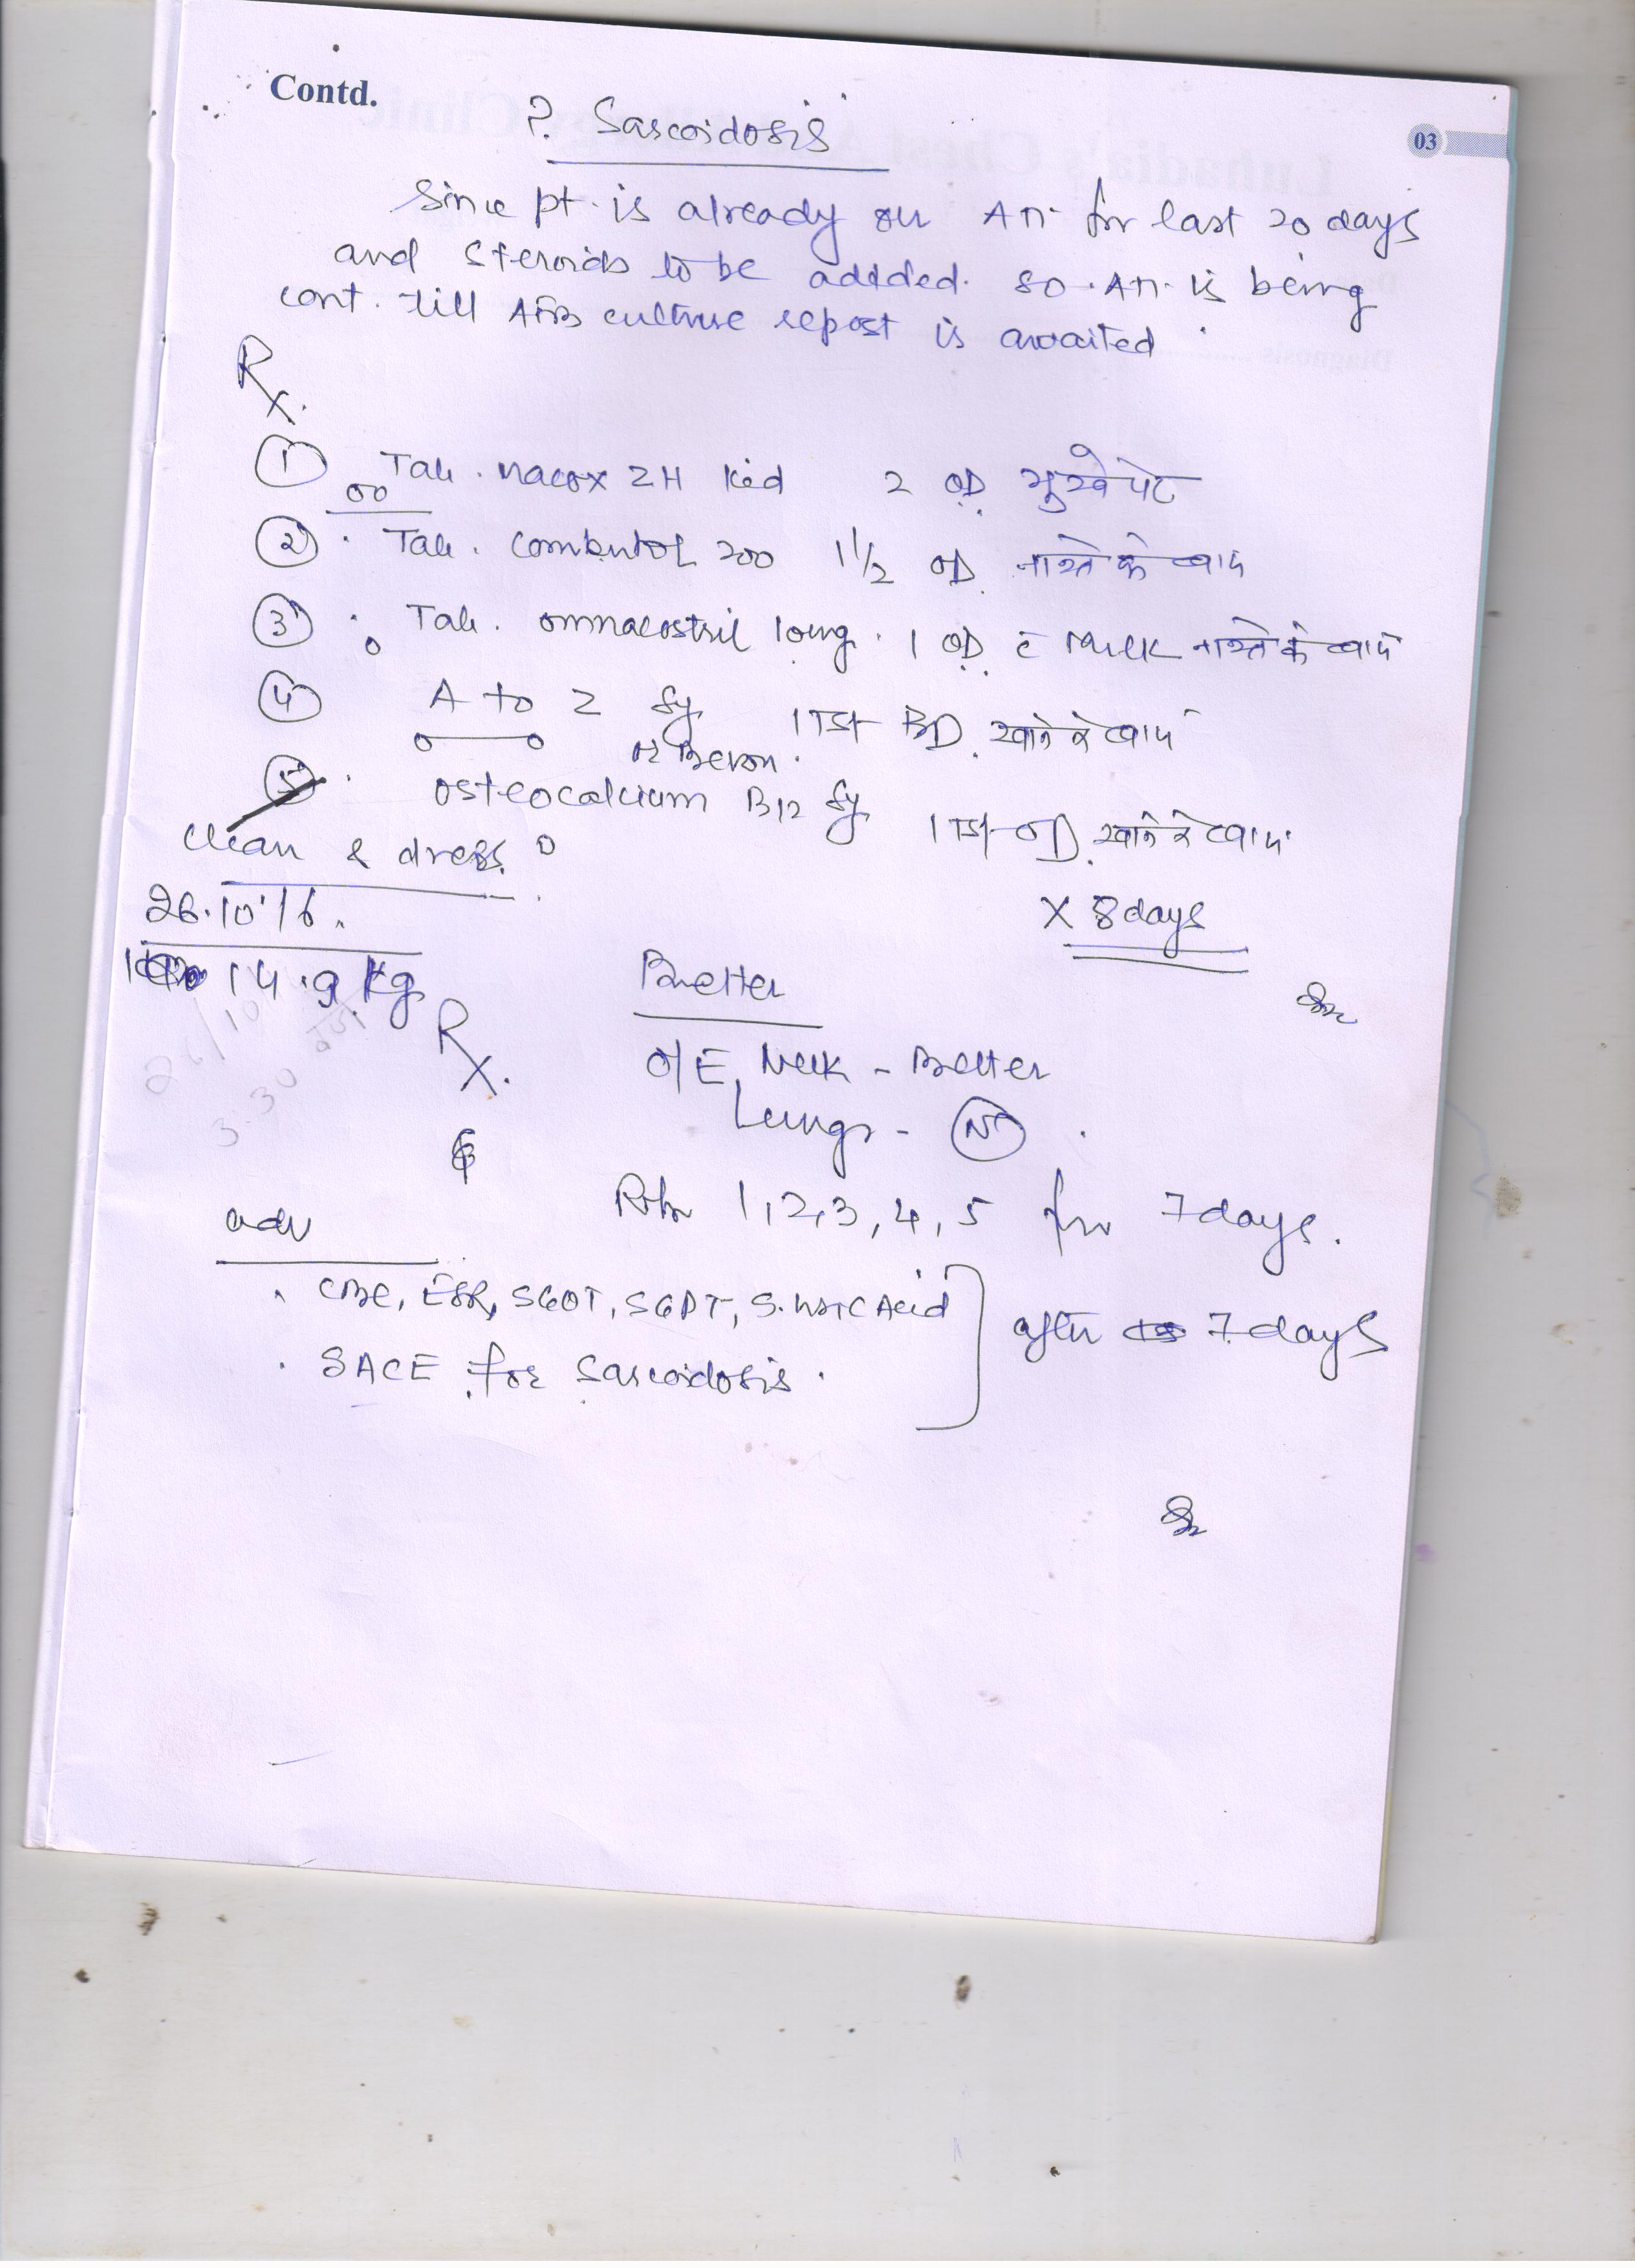 Contd.
03
? Sarcoidosis
Since pt. is already on ATT. for last 20 days
and steroids to be addded. so ATT. is being
cont. till AFB culture report is awaited
Rx.
1 Tab. macox ZH kid 2 OD भुखे पेट
2 Tab. combutol 200 1 1/2 OD नाश्ते के बाद
3 Tab. omnacortril long. 1 OD c Milk नाश्ते के बाद
4 A to Z Sy 1 TSf BD खाने के बाद
or Bevon.
5 osteocalcium B12 Sy 1 TSf OD खाने के बाद
clean & dress.
x 8 days
26.10.16.
14.9 kg
Better
Rx.
O/E, Neck - Better
Lungs - N
Rptr 1,2,3,4,5 for 7 days.
adv
CBC, ESR, SGOT, SGPT, S. Uric Acid
after 7 days
SACE for sarcoidosis.